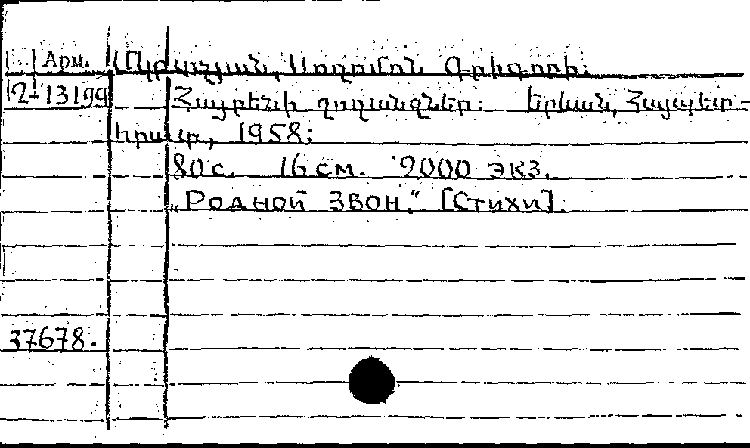 Арм. Սողոմոն Գրիգորի։
2-13199 Հայրենի ղողանջներ։ Երևան, Հայպետ-
հրատ, 1958։
80 с. 16 см. 2000 экз.
„Родной звон.“ [Стихи].
37678.